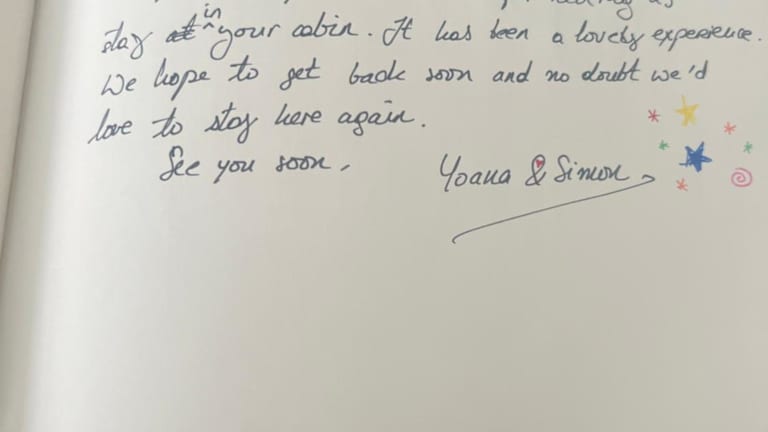 stay in your cabin. It has been a lovely experience.
We hope to get back soon and no doubt we'd
love to stay here again.
See you soon,
Yoana & Simon